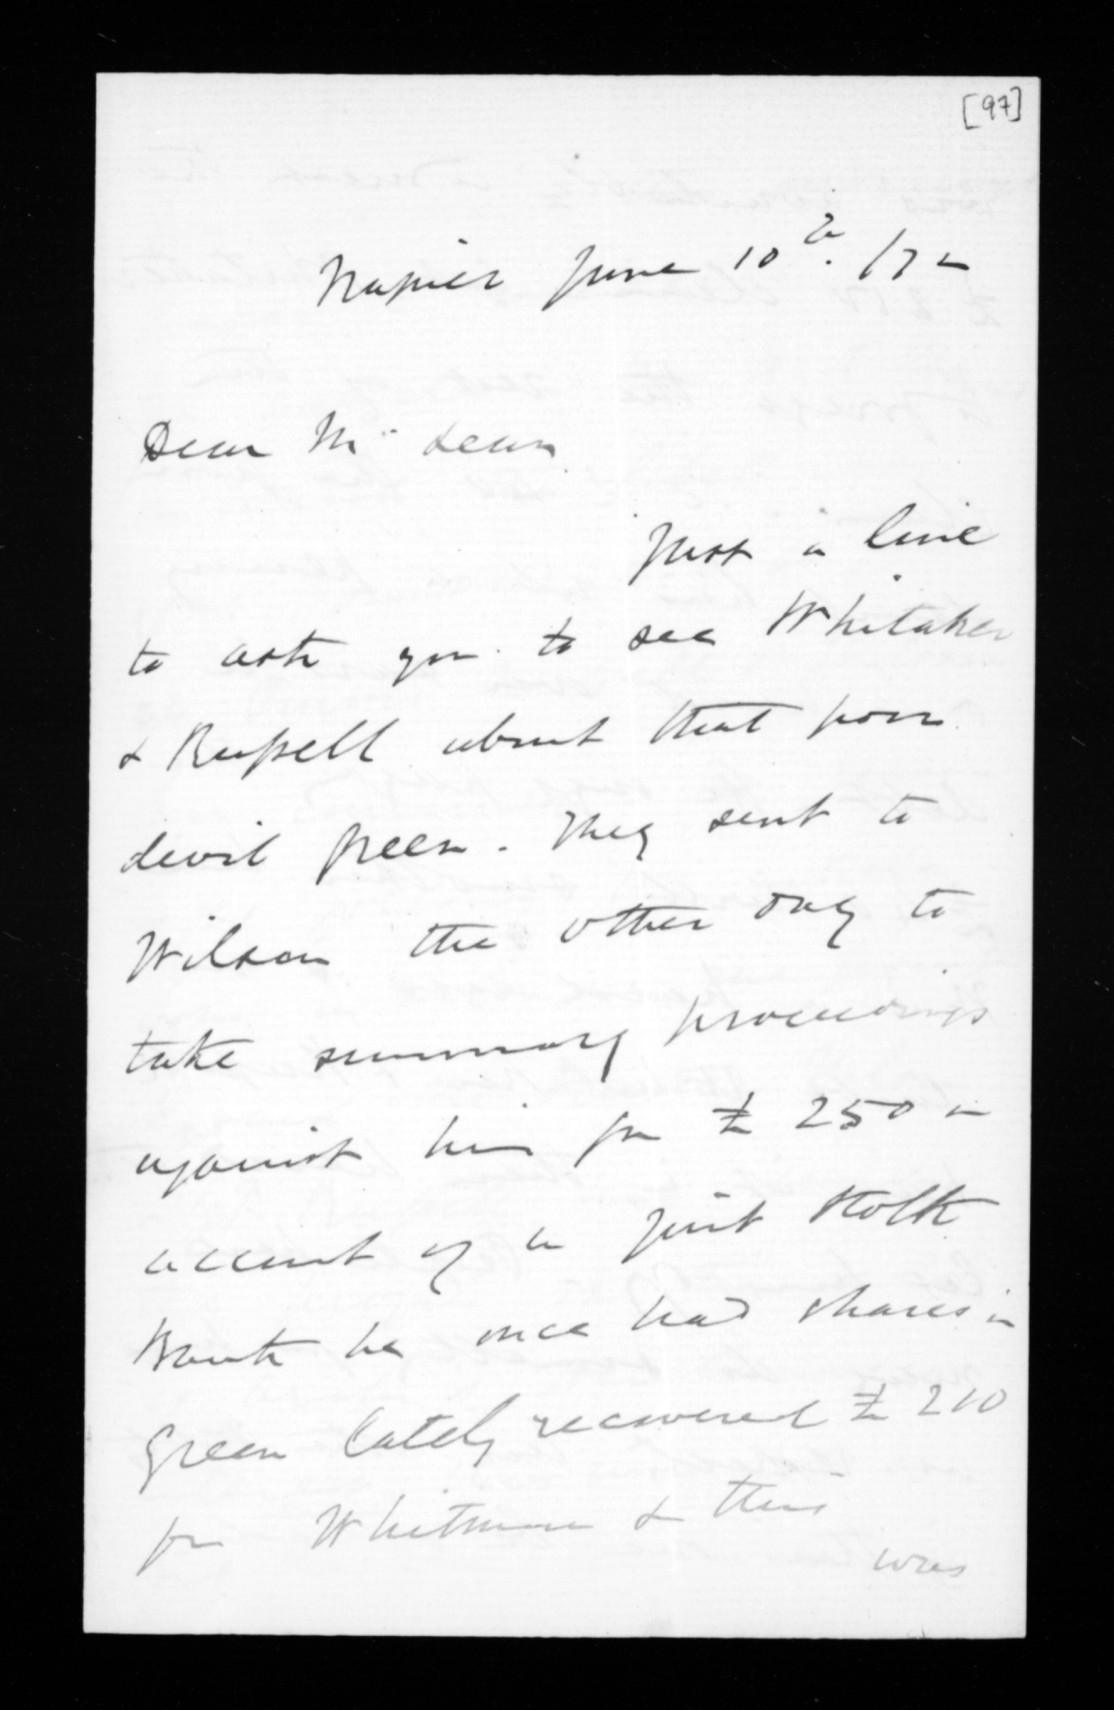 [97]
Napier June 10th. /72
Dear Mr Lean
Just a line
to ask you to see Whitaker
& Russell about that poor
devil Green. They sent to
Wilson the other day to
take summary proceedings
against him for £250 on
account of a joint stock
Bank he once had shares in
Green lately recovered £210
for Whitmore & this
was